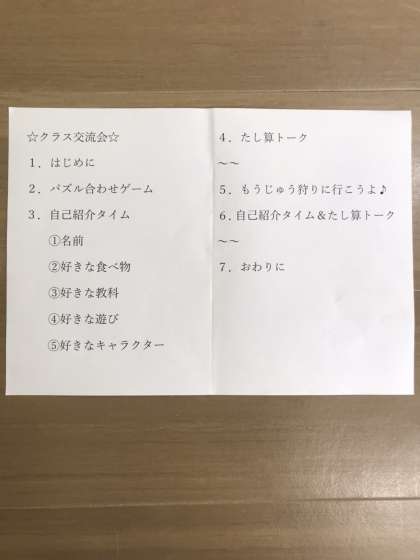 ☆クラス交流会☆
１．はじめに
２．パズル合わせゲーム
３．自己紹介タイム
①名前
②好きな食べ物
③好きな教科
④好きな遊び
⑤好きなキャラクター
４．たし算トーク
～～
５．もうじゅう狩りに行こうよ♪
６.自己紹介タイム＆たし算トーク
～～
７．おわりに